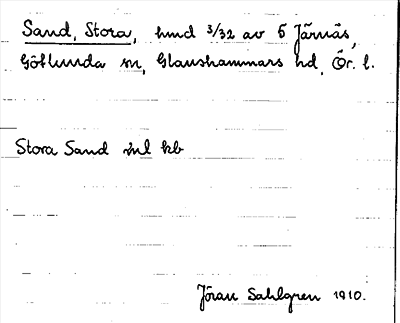 Sand, Stora, hmd 3/32 av 5 Järnäs,
Götlunda sn, Glanshammars hd, Ör. l.
Stora Sand enl kb
Jöran Sahlgren 1910.